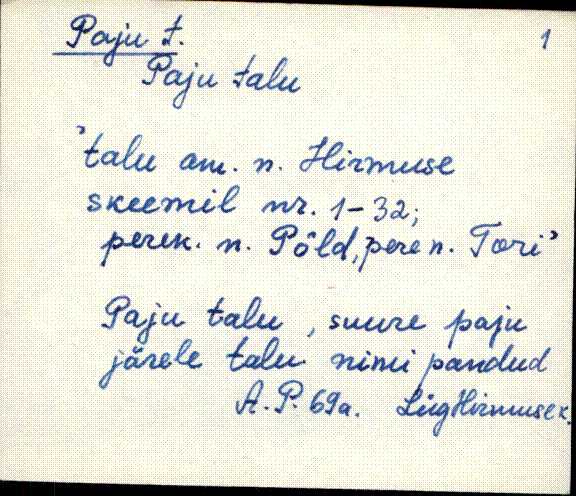 Paju t. 1
Paju talu
'talu am. n. Hirmuse
skeemil nr. 1-32;
perek. n. Põld, pere n. Tori'
Paju talu, suure paju
järele talu nimi pandud
A.P. 69a. Lüg Hirmuse k.